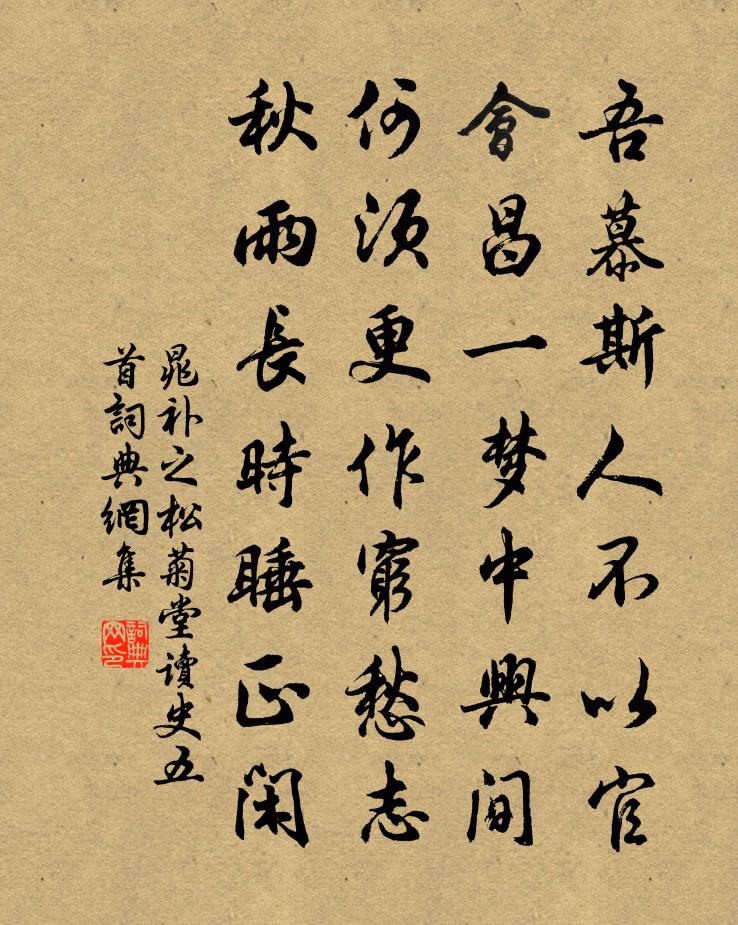 吾慕斯人不以官
會昌一梦中興間
何須更作窮愁志
秋雨長時睡正閑
晁补之松菊堂讀史五
首詞典網集
詞典
网印